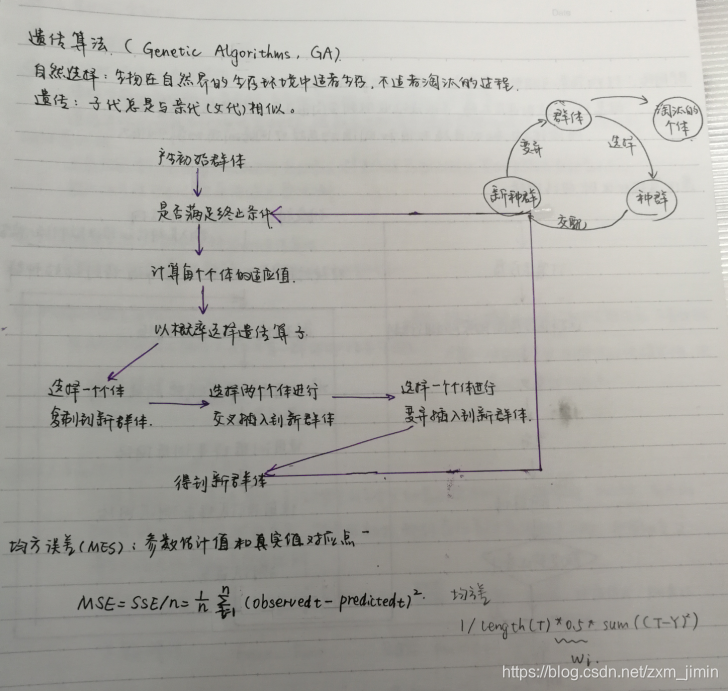 遗传算法.（Genetic Algorithms, GA）
自然选择：生物在自然界的生存环境中适者生存，不适者淘汰的过程.
遗传：子代总是与亲代（父代）相似。
群体
淘汰的个体
变异
选择
新种群
种群
交配
产生初始群体
是否满足终止条件
计算每个个体的适应值.
以概率选择遗传算子.
选择一个个体
复制到新群体.
选择两个个体进行
交叉插入到新群体
选择一个个体进行
变异插入到新群体.
得到新群体
均方误差(MES)：参数估计值和真实值对应点
MSE=SSE/n=1/n n∑t=1 (observedt-predictedt)².
均方差
1/length(T)*0.5*sum((T-Y)²)
Wi.
https://blog.csdn.net/zxm_jimin